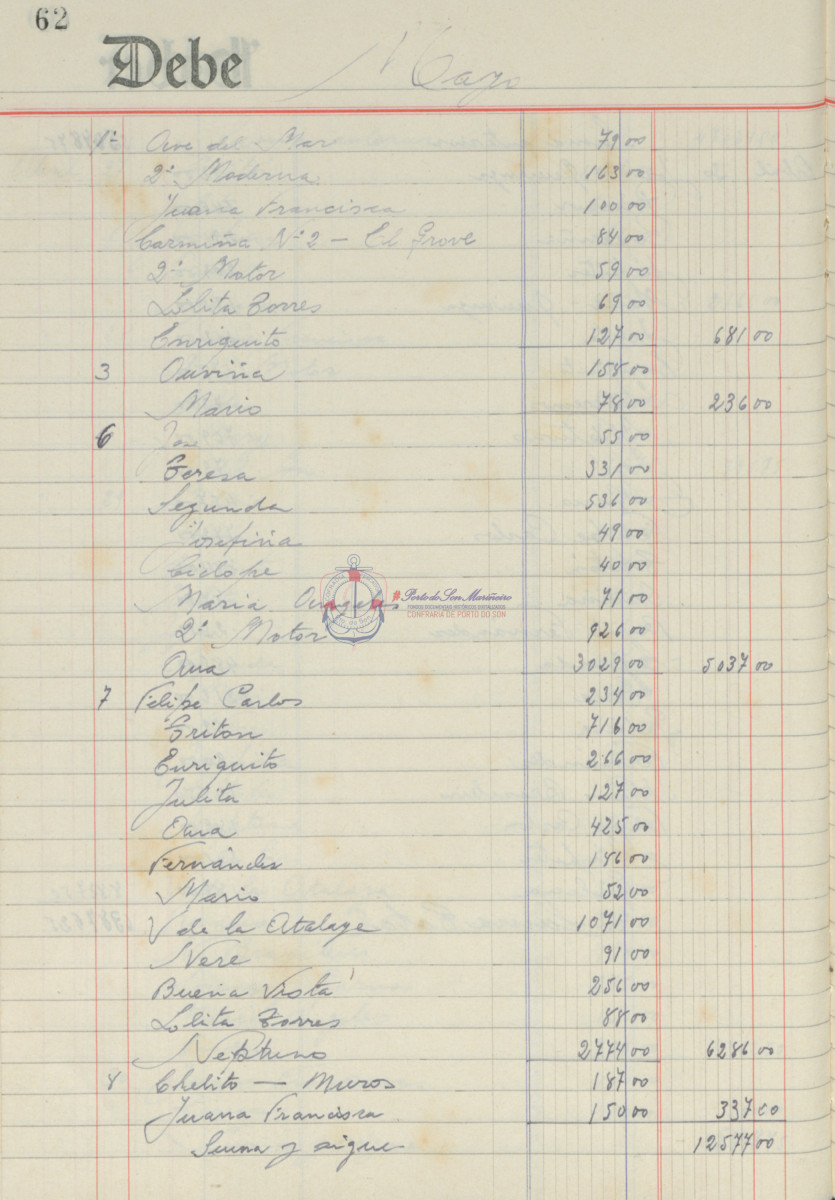 62
Debe Mayo
1º Ave del Mar 79 00
2ª Moderna 163 00
Juana Francisca 100 00
Carmiña Nº 2 - El Grove 84 00
2º Motor 59 00
Lolita Torres 69 00
Enriquito 127 00 681 00
3 Ouviña 158 00
Mario 78 00 236 00
6 Jose 55 00
Teresa 331 00
Segunda 536 00
Josefina 49 00
Ciclope 40 00
Maria Angeles 71 00
#PortodoSonMariñeiro
FONDOS DOCUMENTAIS HISTÓRICOS DIXITALIZADOS
CONFRARIA DE PORTO DO SON
2º Motor 926 00
Ana 3029 00 5037 00
7 Felipe Carlos 234 00
Triton 716 00
Enriquito 266 00
Julita 127 00
425 00
Fernández 186 00
Mario 52 00
V de la Atalaya 1071 00
Nere 91 00
Buena Vista 256 00
Lolita Torres 88 00
Neptuno 2774 00 6286 00
8 Chelito — Muros 187 00
Juana Francisca 150 00 337 00
Suma y sigue 12577 00